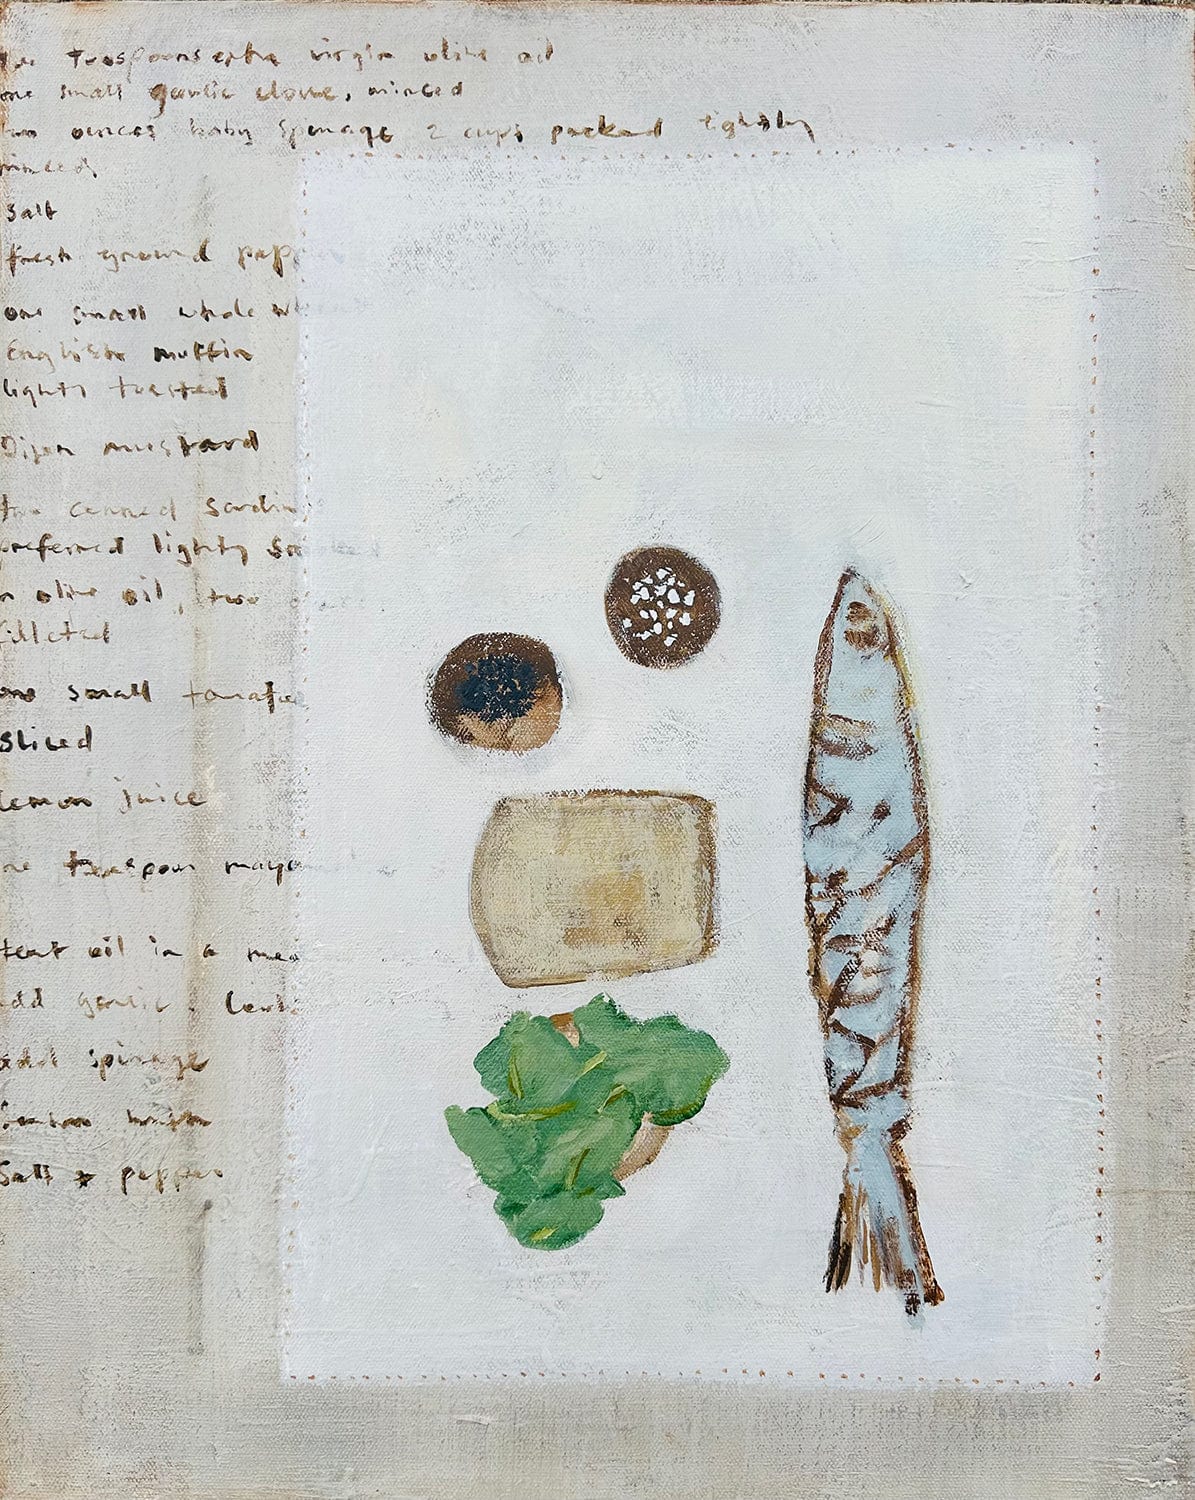 teaspoons extra virgin olive oil
one small garlic clove, minced
two ounces baby spinage 2 cups packed tightly
minced,
Salt
fresh ground pepp
one small whole wh
English muffin
lightly toasted
Dijon mustard
two canned Sardin
preferred lightly Smoked
in olive oil, two
filleted
one small tomatoe
Sliced
Lemon juice
teaspoon mayo
Heat oil in a me
add garlic. Cook
add spinage

Salt & pepper